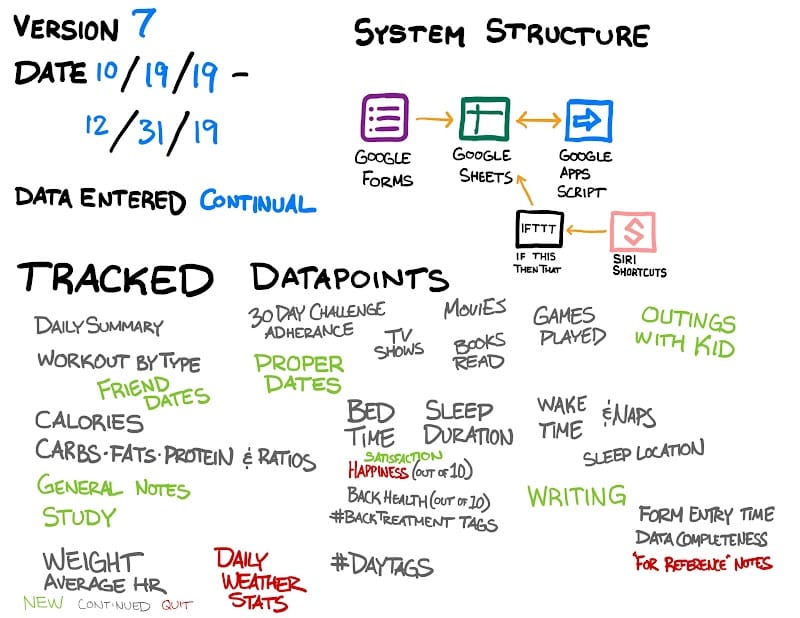 VERSION 7
DATE 10/19/19 -
12/31/19
DATA ENTERED CONTINUAL
SYSTEM STRUCTURE
GOOGLE
FORMS
GOOGLE
SHEETS
GOOGLE
APPS
SCRIPT
IFTTT
IF THIS
THEN THAT
SIRI
SHORTCUTS
TRACKED DATAPOINTS
DAILY SUMMARY
30 DAY CHALLENGE
ADHERANCE
TV
SHOWS
MOVIES
BOOKS
READ
GAMES
PLAYED
OUTINGS
WITH KID
WORKOUT BY TYPE
FRIEND
DATES
PROPER
DATES
CALORIES
CARBS·FATS·PROTEIN & RATIOS
BED
TIME
SLEEP
DURATION
WAKE
TIME
& NAPS
SLEEP LOCATION
SATISFACTION
HAPPINESS (OUT OF 10)
GENERAL NOTES
STUDY
BACK HEALTH (OUT OF 10)
#BACKTREATMENT TAGS
WRITING
FORM ENTRY TIME
DATA COMPLETENESS
"FOR REFERENCE" NOTES
WEIGHT
AVERAGE HR
DAILY
WEATHER
STATS
#DAYTAGS
NEW CONTINUED QUIT